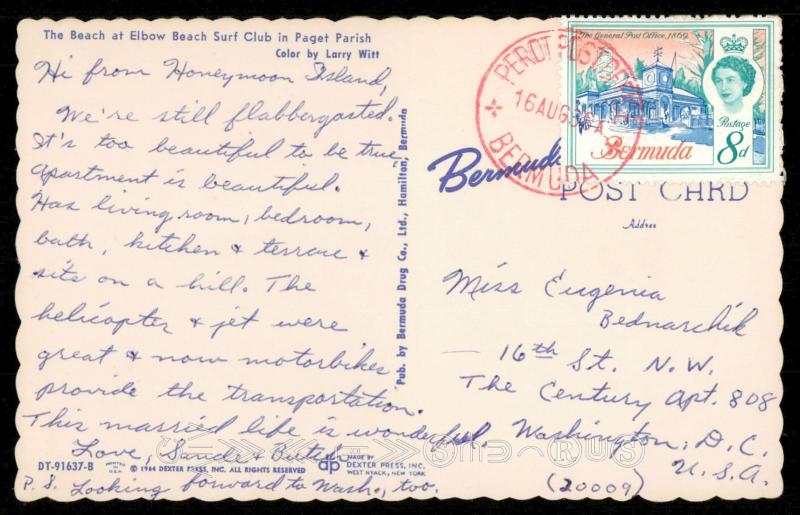 The Beach at Elbow Beach Surf Club in Paget Parish
Color by Larry Witt
Hi from Honeymoon Island,
We're still flabbergasted.
It's too beautiful to be true,
apartment is beautiful.
Has living room, bedroom,
bath, kitchen & terrace &
sits on a hill. The
helicopter & jet were
great & now motorbikes
provide the transportation.
This married life is wonderful.
Love, Sande &
P.S. Looking forward to Wash., too.
DT-91637-B
PRINTED IN U.S.A.
© 1964 DEXTER PRESS, INC. ALL RIGHTS RESERVED
dp
MADE BY
DEXTER PRESS, INC.
WEST NYACK, NEW YORK
Pub. by Bermuda Drug Co., Ltd., Hamilton, Bermuda
PEROT POST
16 AUG
BERMUDA
The General Post Office, 1869
Postage
Bermuda
8d
Bermuda
POST CARD
Address
Miss Eugenia
Bednarchik
— 16th St. N.W.
The Century Apt. 808
Washington, D.C.
U.S.A.
(20009)